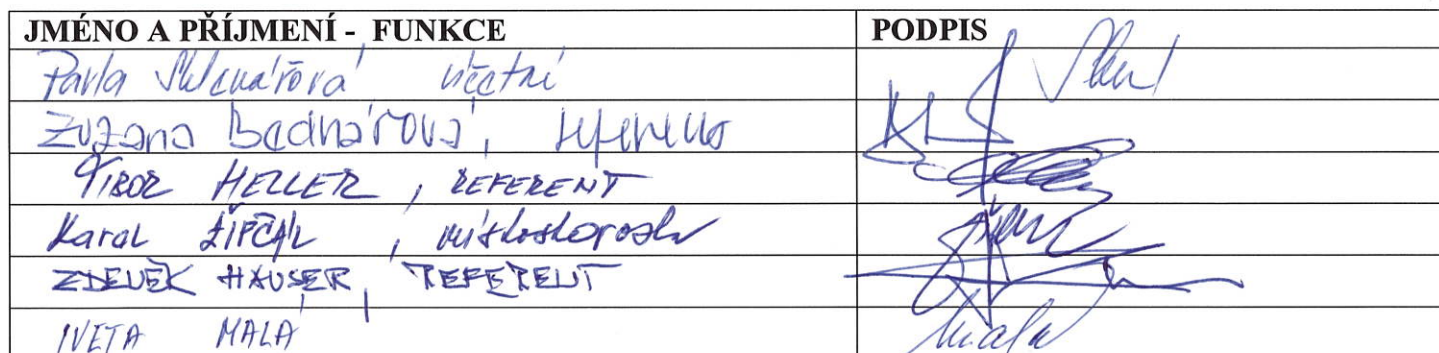 JMÉNO A PŘÍJMENÍ - FUNKCE PODPIS
Pavla Sklenářová účetní
Zuzana Bednářová, referent
TIBOR HELLER, REFERENT
Karol místostarosta
ZDENĚK HAUSER, REFERENT
IVETA MALÁ Malá